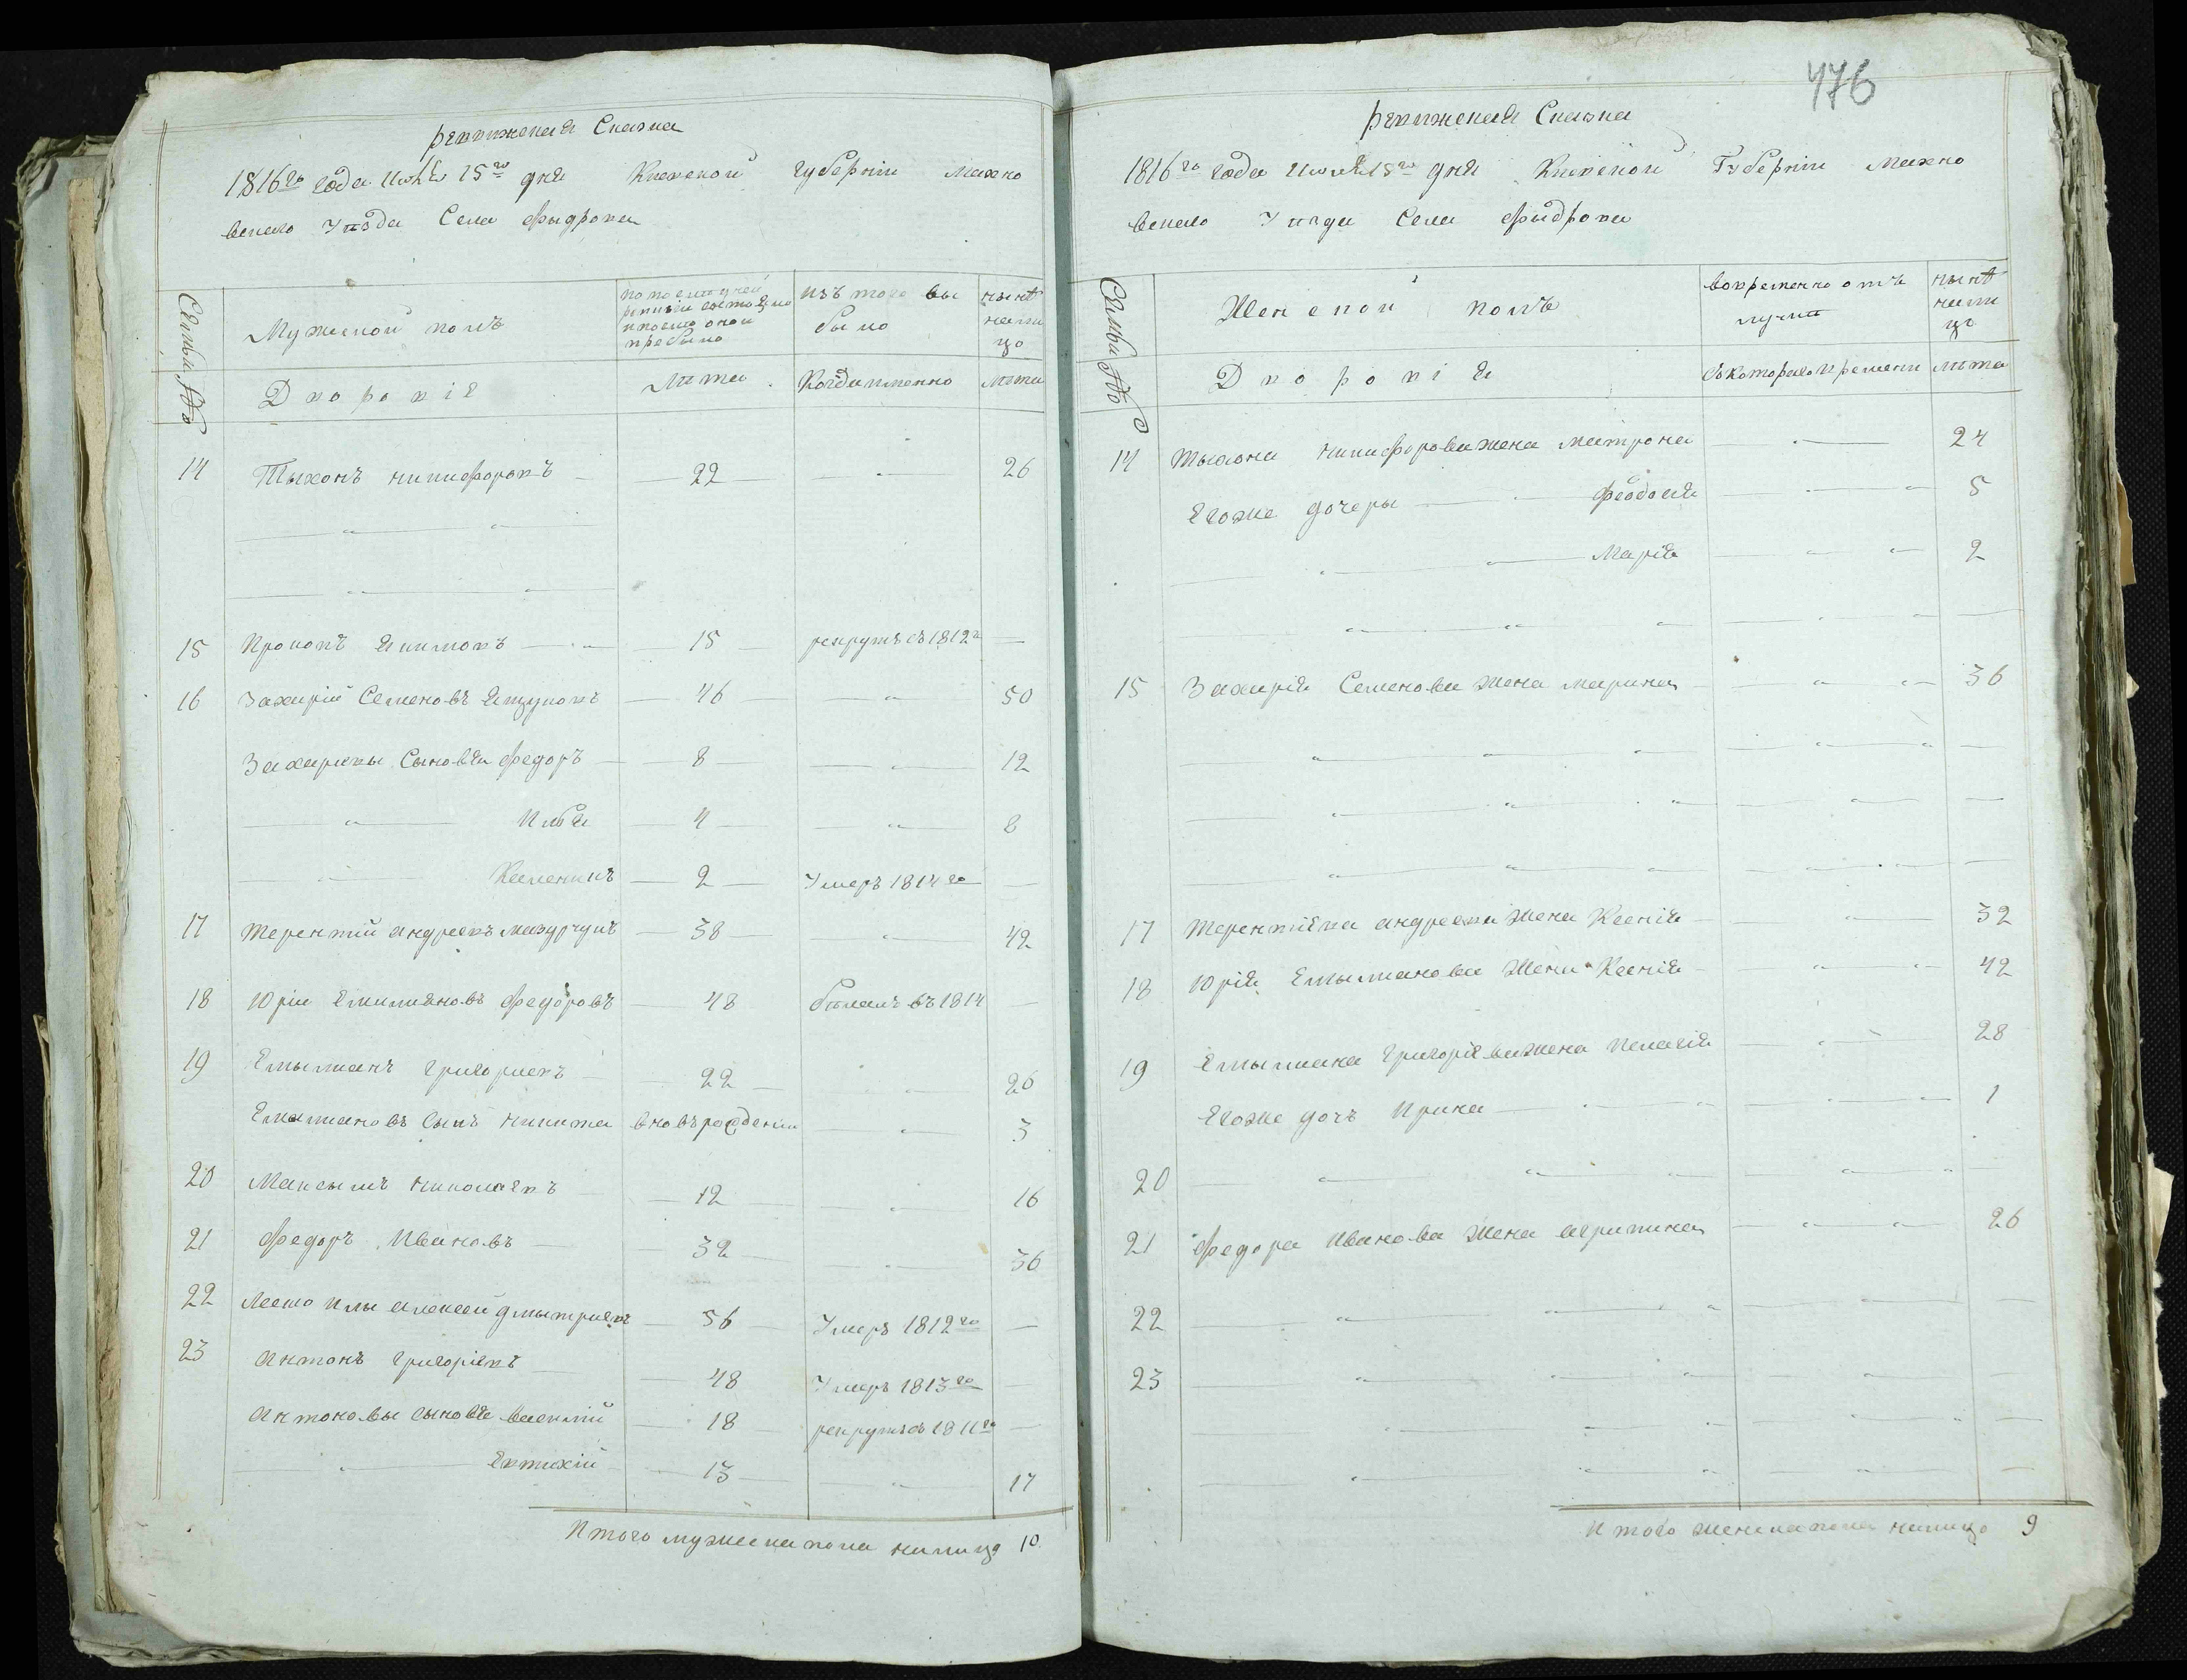 Ревижская Сказка
1816го года Июля 15го дня Киевской губернии Махно
вского Уѣзда Села Фыдровки
Семьи №
Мужеской полъ
по последней ревизіи состояло и после оной прибыло
изъ того выбыло
нынѣ налицо
Дворовіе
Лѣта
Когда именно
Лѣта
14 Тыхонъ никифоровъ 22 26
15 Прокопъ Якимовъ 15 рекрутъ въ 1812го
16 Захарій Семеновъ Ящукъ 46 50
Захариевы Сыновья Федоръ 8 12
Илья 4 8
2 Умеръ 1814го
17 Терентій андреевъ мазурчукъ 38 42
18 Юрій Емилияновъ Федоровъ 48 бѣжалъ въ 1814
19 Емылианъ григориевъ 22 26
Емылиановъ Сынъ никита вновъ рожденіи 3
20 Максымъ николаевъ 12 16
21 Федоръ Ивановъ 32 36
22 Леско илы алексей дмытриевъ 56 Умеръ 1812го
23 Антонъ григоріевъ 48 Умеръ 1813го
Антоновы сыновья василій 18 рекрутъ въ 1811го
Евтихій 13 17
Итого мужеска пола налицо 10
476
Ревижская Сказка
1816го года Июля 15го дня Киевской Губерніи Махно
вского Уѣзда Села Фидровки
Семьи №
Женской полъ
во временно отлучки
нынѣ налицо
Дворовія
съ которого времени
лѣта
14 Тыхона никифорова жена матрона 24
Егоже дочеры Феодосия 5
Марія 2
15 Захарія Семенова жена марина 36
17 Терентіева андреева жена Ксенія 32
18 Юрія Емылианова жена Ксенія 42
19 Емылиана григоріева жена пелагія 28
Егоже дочъ Ирина 1
20
21 Федора Иванова жена агрипина 26
22
23
Итого женска пола налицо 9